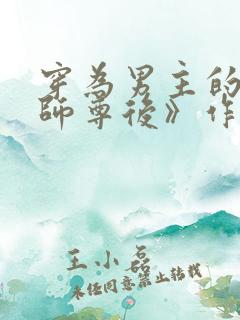 穿為男主的
師尊後》作
王小磊
未经同意禁止转载